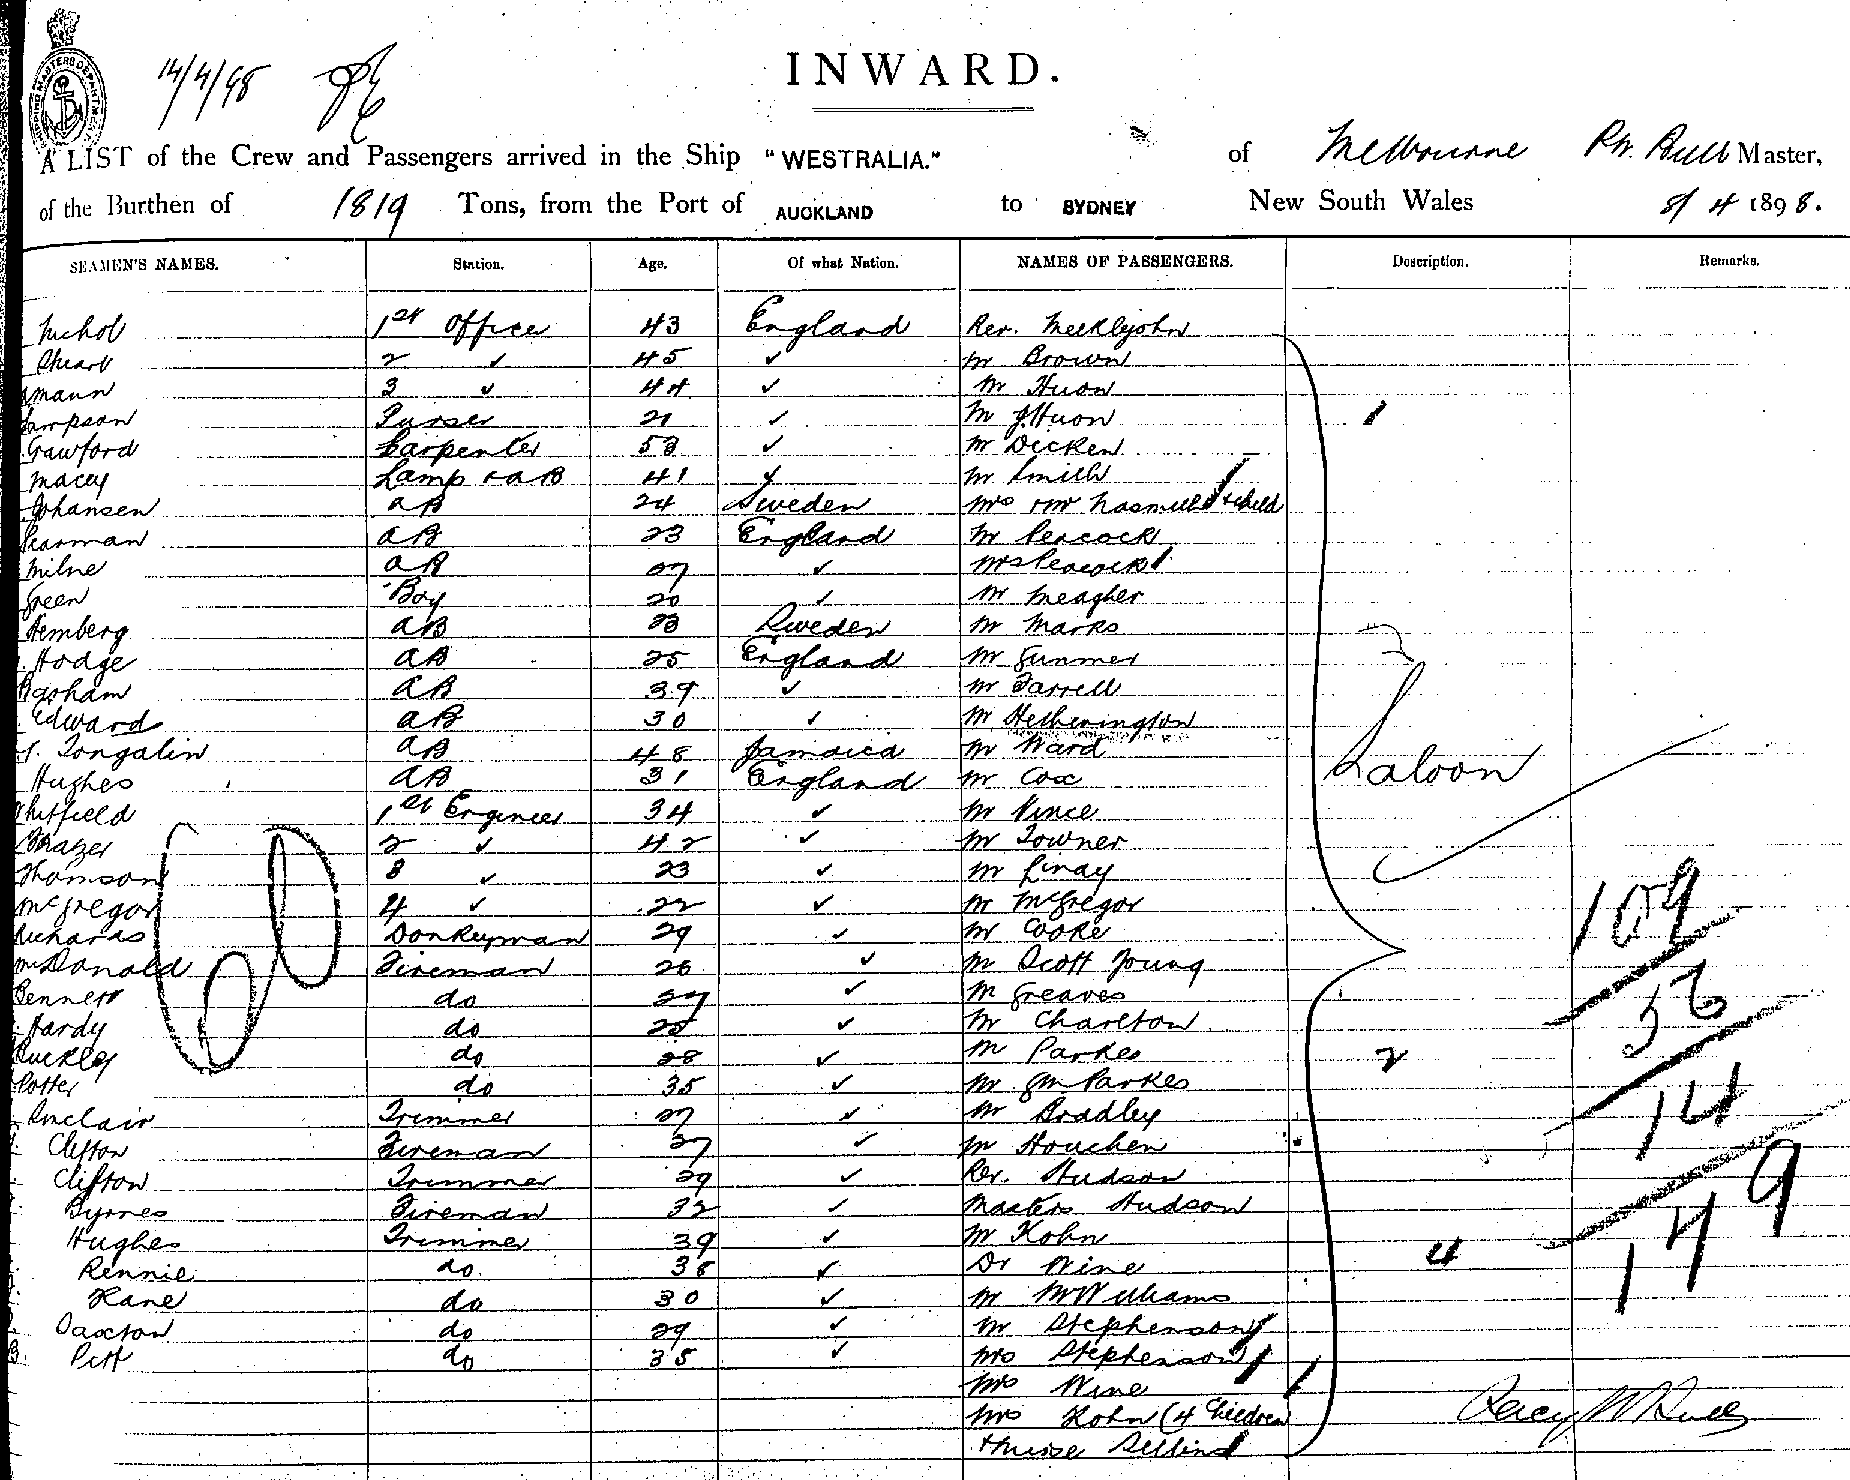 14/4/98
INWARD.
A LIST of the Crew and Passengers arrived in the Ship "WESTRALIA." of Melbourne Bull Master,
of the Burthen of 1819 Tons, from the Port of AUCKLAND to SYDNEY New South Wales 8/4 1898.
SEAMEN'S NAMES. Station. Age. Of what Nation. NAMES OF PASSENGERS. Description. Remarks.
Nichol 1st Office 43 England Rev. Meeklejohn
2 ✓ 45 ✓ Mr Brown
mann 3 ✓ 44 ✓ Mr Huon
Sampson Purser 21 ✓ Mr J Huon 1
Crawford Carpenter 53 ✓ Mr Dicken
Macey Lamp & AB 41 ✓ Mr Smith
Johansen AB 24 Sweden Mrs & child
Pearman AB 23 England Mr Peacock
Milne AB 27 ✓ Mrs Peacock
Green Boy 20 ✓ Mr Meagher
Hemberg AB 23 Sweden Mr Marks
Hodge AB 25 England Mr Gunmer
Basham AB 39 ✓ Mr Farrell
Edward AB 30 ✓ Mr Hetherington
Tongalin AB 48 Jamaica Mr Ward
Saloon
Hughes AB 31 England Mr Cox
Whitfield 1st Engineer 34 ✓ Mr Vince
Frazer 2 ✓ 42 ✓ Mr Towner
Thomson 3 ✓ 23 ✓ Mr
McGregor 4 ✓ 22 ✓ Mr McGregor
109
Richards Donkeyman 29 ✓ Mr Cooke
McDonald Fireman 26 ✓ Mr Scott Young
Bennett do 27 ✓ Mr Greaves
Hardy do 25 ✓ Mr Charlton
Buckley do 28 ✓ Mr Parkes 2
Potter do 35 ✓ Mr Parkes
14
Sinclair Trimmer 27 ✓ Mr Bradley
Clifton Fireman 27 ✓ Mr Houchen
Clifton Trimmer 29 ✓ Rev. Hudson
Byrnes Fireman 32 ✓ Masters Hudson
149
Hughes Trimmer 39 ✓ Mr Kohn 4
Rennie do 38 ✓ Dr Wine
Kane do 30 ✓ Mr McWilliams
Saxton do 29 ✓ Mr Stephenson
Pitt do 35 ✓ Mrs Stephenson
Mrs Wine
Mrs Kohn (4 Children
& Nurse
Percy W Bull